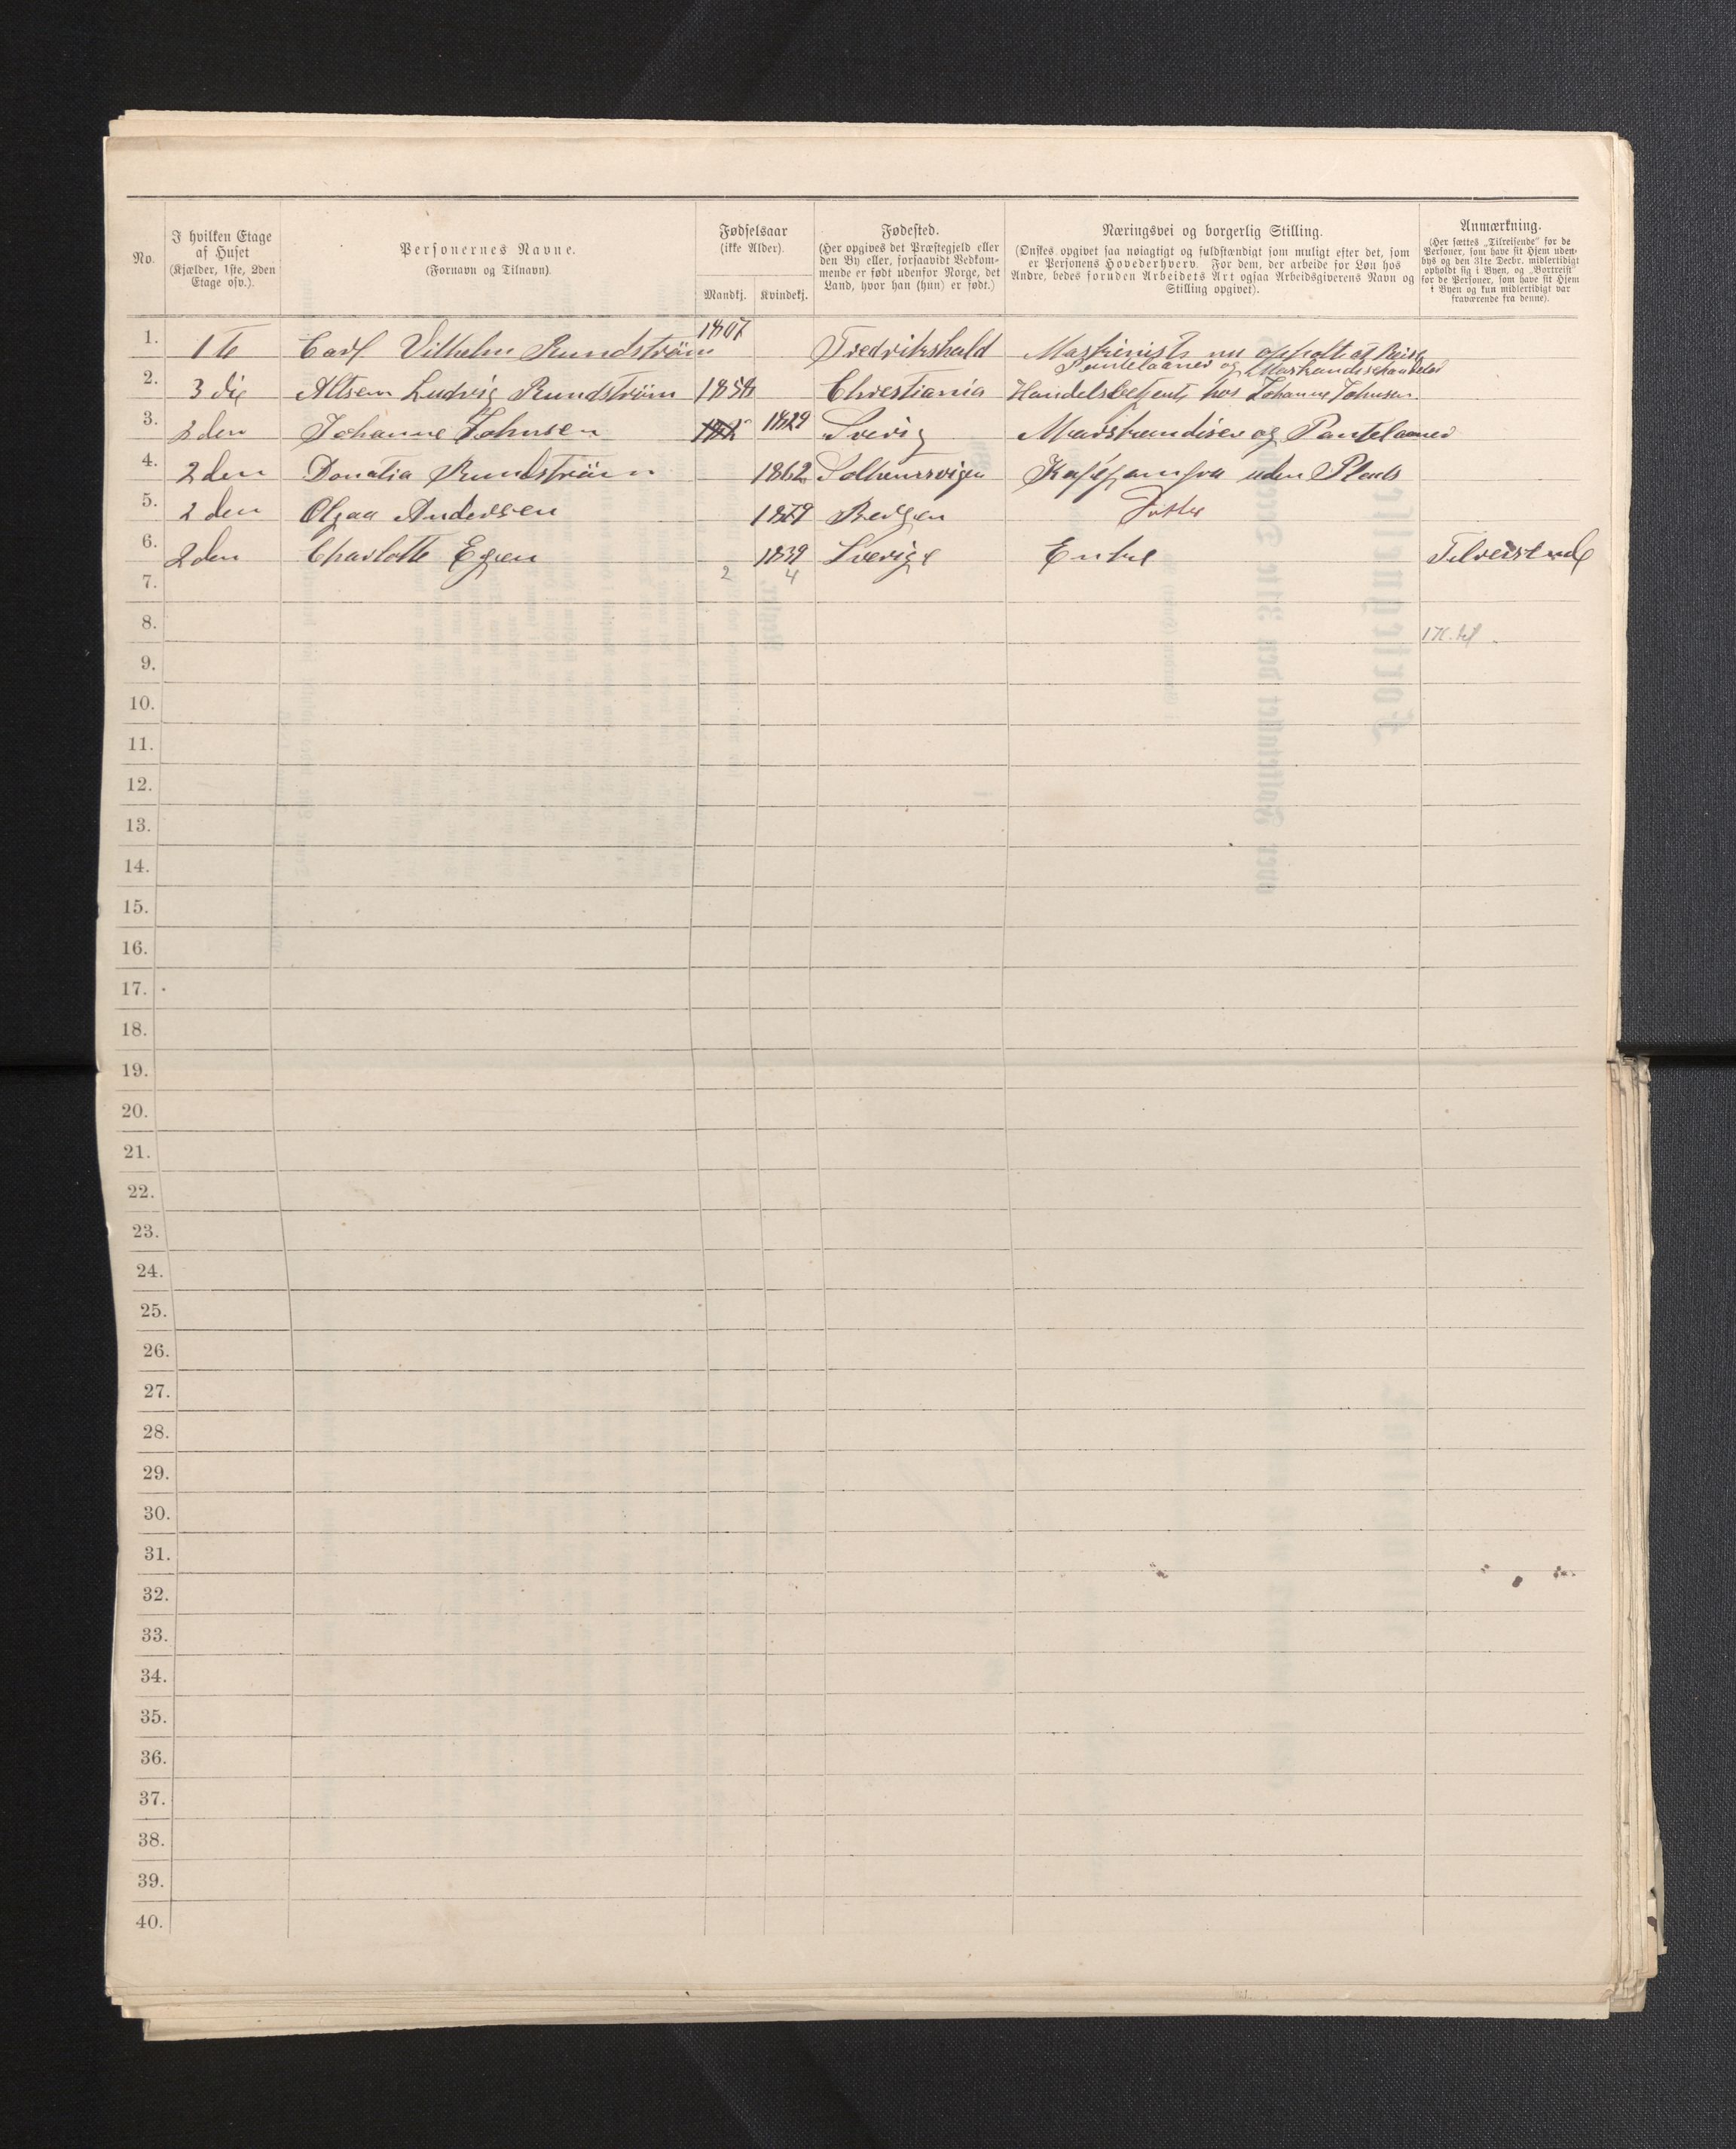 No.
I hvilken Etage
af Huset
(Kjælder, 1ste, 2den
Etage osv.).
Personernes Navne.
(Fornavn og Tilnavn).
Fødselsaar
(ikke Alder).
Mandkj. Kvindekj.
Fødested.
(Her opgives det Præstegjeld eller
den By eller, forsaavidt Vedkom-
mende er født udenfor Norge, det
Land, hvor han (hun) er født.)
Næringsvei og borgerlig Stilling.
(Ønskes opgivet saa nøiagtigt og fuldstændigt som muligt efter det, som
er Personens Hovederhverv. For dem, der arbeide for Løn hos
Andre, bedes foruden Arbeidets Art ogsaa Arbeidsgiverens Navn og
Stilling opgivet).
Anmærkning.
(Her sættes „Tilreisende“ for de
Personer, som have sit Hjem uden-
bys og den 31te Decbr. midlertidigt
opholdt sig i Byen, og „Bortreist“
for de Personer, som have sit Hjem
i Byen og kun midlertidigt var
fraværende fra denne).
1. 1te Carl Vilhelm Rundström Fredrikshald Maskinist nu opholt at Reise
Pantelaaner og Marskandisehandler
2. 3die Ludvig Rundström 1858 Christiania Handelsbetjent hos Johanne Johnsen
3. 2den Johanne Johnsen 1829 Sverig Marskandiser og Pantelaaner
4. 2den Donatia Rundström 1862 uden Plads
5. 2den Olgaa Andersen 1879 Bergen
6. 2den Charlotte Egen 1839 Sverige Enke Tilreisende
2 4
7.
8.
9.
10.
11.
12.
13.
14.
15.
16.
17.
18.
19.
20.
21.
22.
23.
24.
25.
26.
27.
28.
29.
30.
31.
32.
33.
34.
35.
36.
37.
38.
39.
40.